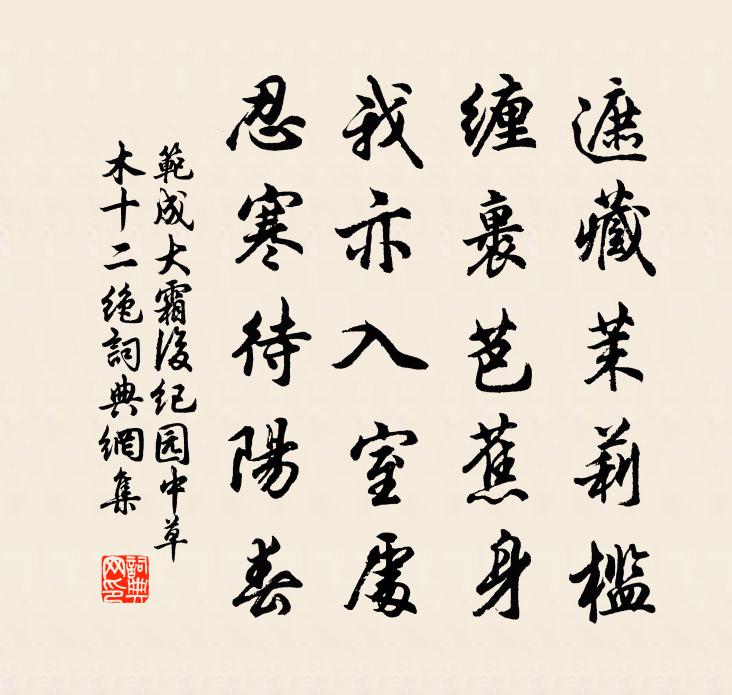 遮藏茉莉檻
纏裹芭蕉身
我亦入室處
忍寒待陽春
範成大霜後纪园中草
木十二絶詞典網集
詞典網印